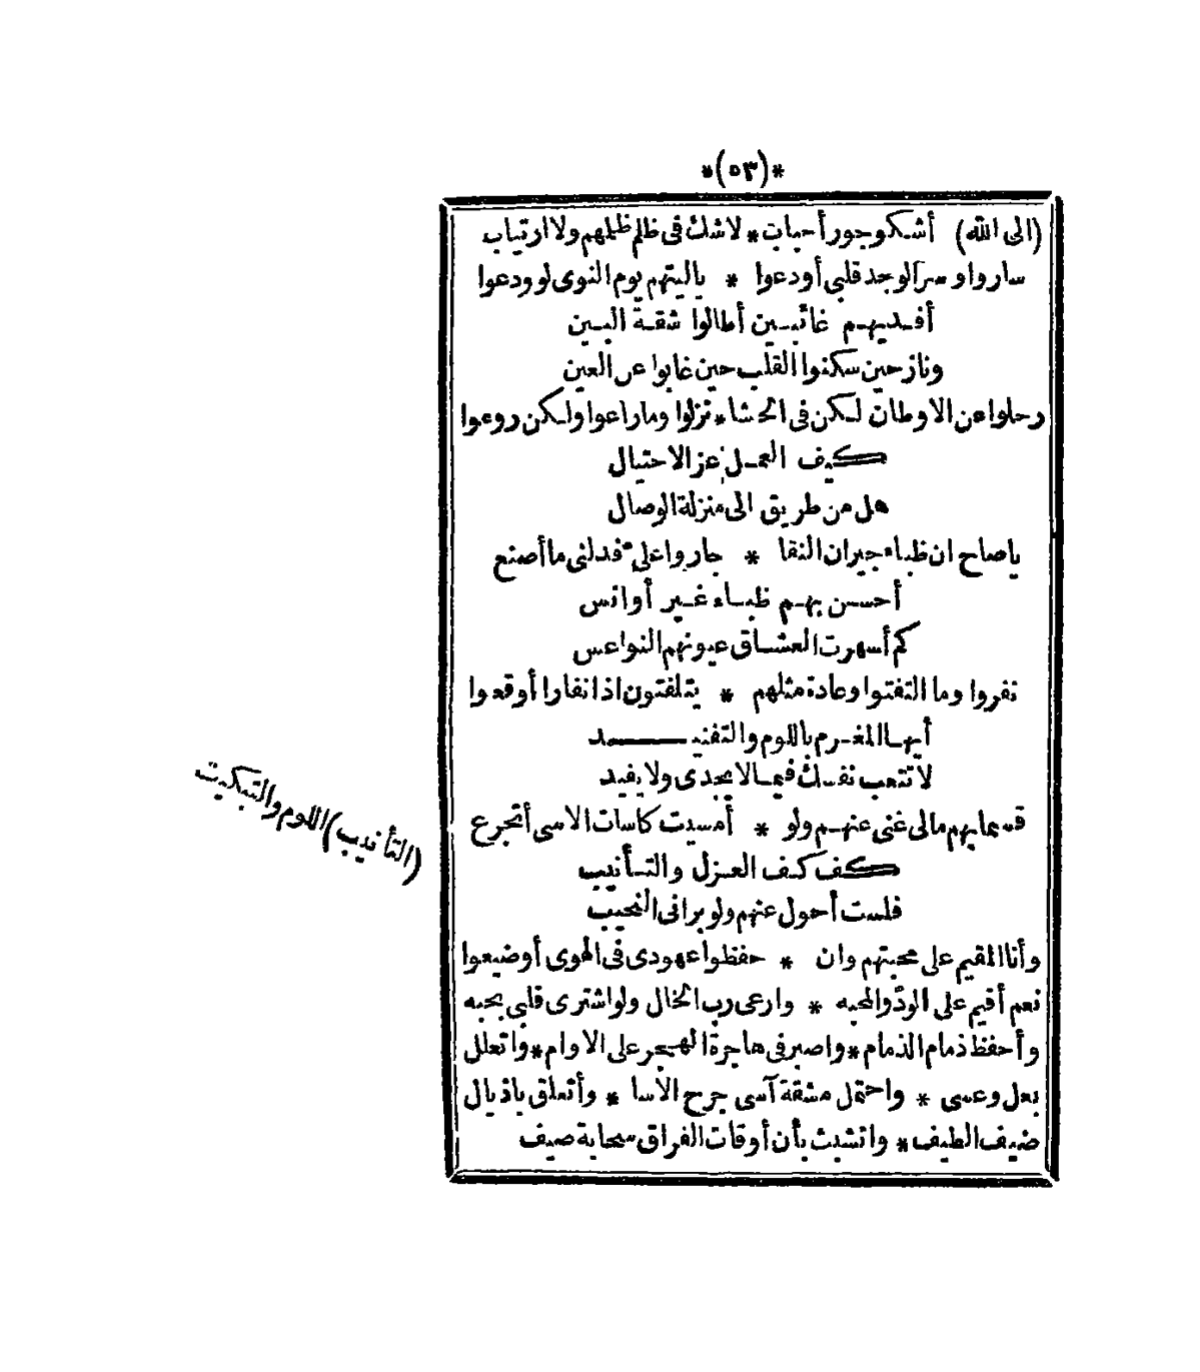 *(٥٣)*
(الى الله) أشكو جور أحباب * لا شك فى ظلم ظلمهم ولا ارتياب
ساروا وسر الوجد قلبى أودعوا * ياليتهم يوم النوى لو ودعوا
أفديهم غائبين أطالوا شقة البين
ونازحين سكنوا القلب حين غابوا عن العين
رحلوا عن الاوطان لكن فى الحشا * نزلوا وما راعوا ولكن روعوا
كيف العمل عز الاحتيال
هل من طريق الى منزلة الوصال
ياصاح ان ظباء جيران النقا * جاروا علىّ فدلنى ما أصنع
أحسن بهم ظباء غير أوانس
كم أسهرت العشاق عيونهم النواعس
نفروا وما التفتوا وعادة مثلهم * يتلفتون اذا نفارا أوقعوا
أيها المغرم باللوم والتفنيد
لا تتعب نفسك فيما لا يجدى ولا يفيد
قسما بهم مالى غنى عنهم ولو * أمسيت كاسات الاسى أتجرع
كفكف العزل والتأنيب
فلست أحول عنهم ولو برانى النحيب
وأنا المقيم على محبتهم وان * حفظوا عهودى فى الهوى أوضيعوا
نعم أقيم على الودّ والمحبه * وارعى رب الخال ولو اشترى قلبى بحبه
وأحفظ ذمام الذمام * واصبر فى هاجرة الهجر على الاوام * واتعلل
بعل وعسى * واحتمل مشقة آسى جرح الأسا * وأتعلق باذيال
ضيف الطيف * واتشبث بأن أوقات الفراق سحابة صيف
(التأنيب) اللوم والتبكيت